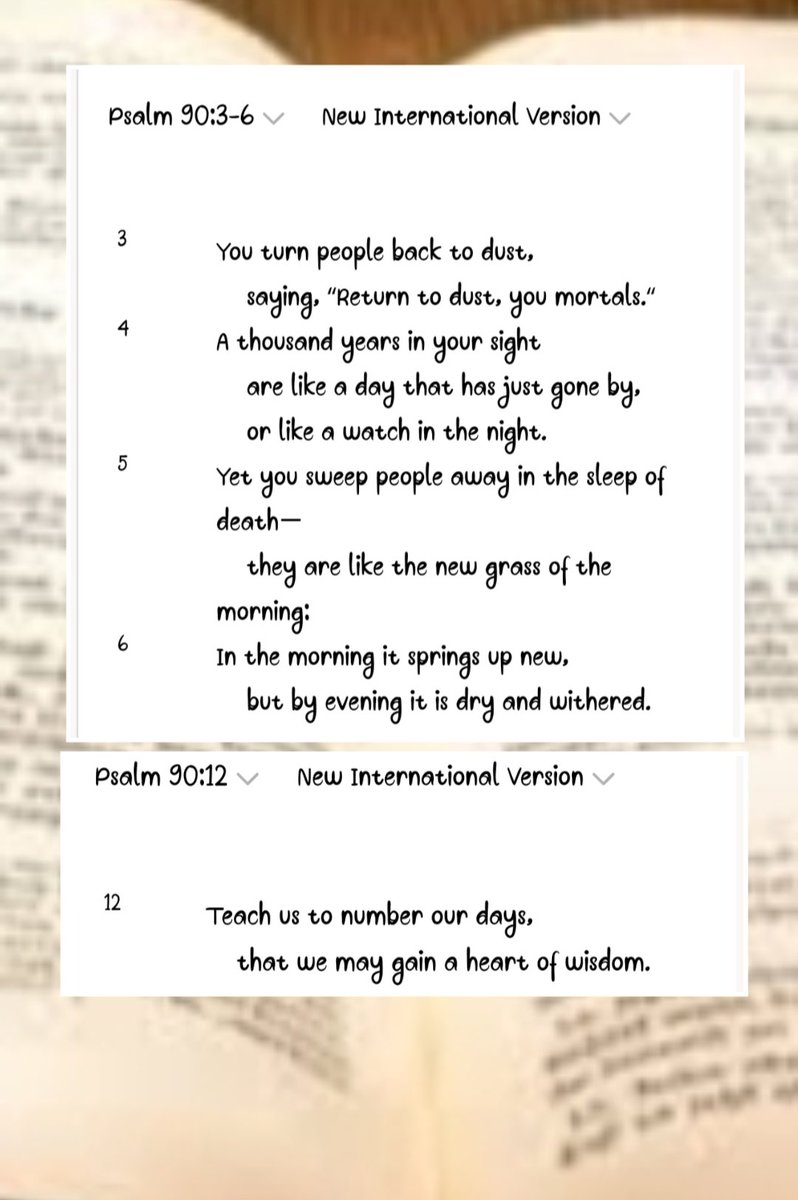 Psalm 90:3-6 New International Version
3
You turn people back to dust,
saying, “Return to dust, you mortals.”
4
A thousand years in your sight
are like a day that has just gone by,
or like a watch in the night.
5
Yet you sweep people away in the sleep of
death—
they are like the new grass of the
morning:
6
In the morning it springs up new,
but by evening it is dry and withered.
Psalm 90:12 New International Version
12
Teach us to number our days,
that we may gain a heart of wisdom.